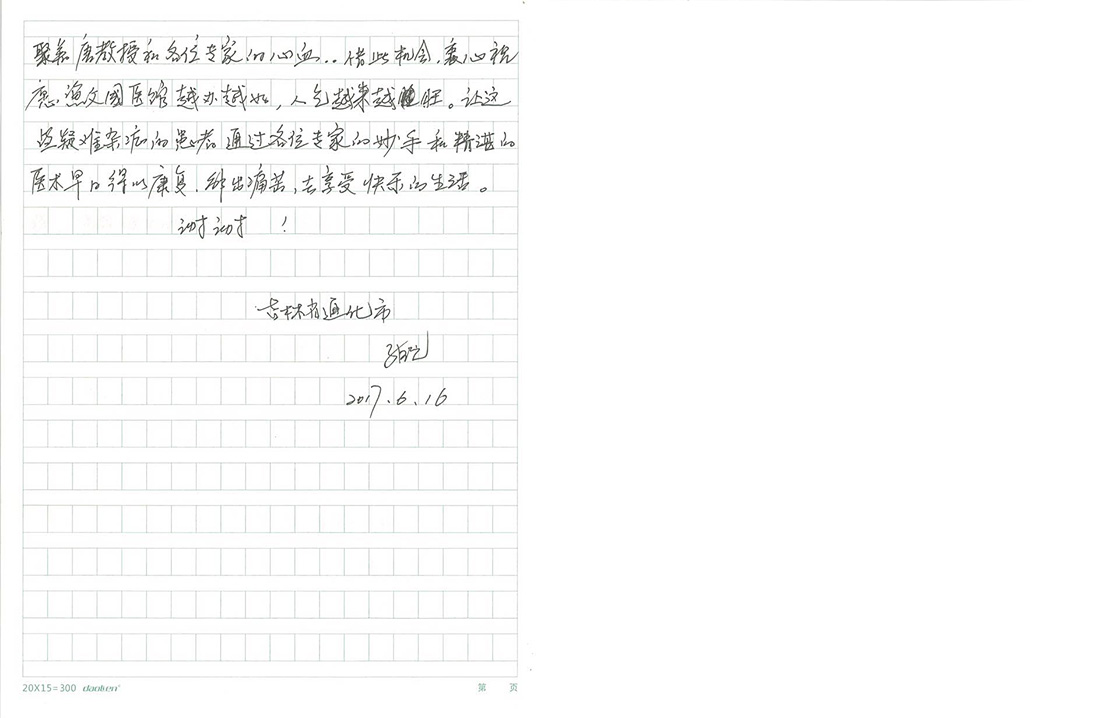 聚着唐教授和各位专家的心血..借此机会,衷心祝
愿渔文国医馆越办越好,人气越来越旺。让这
些疑难杂病的患者通过各位专家的妙手和精湛的
医术早日得以康复.解出痛苦,去享受快乐的生活。
谢谢!
吉林省通化市
2017.6.16
20X15=300 daolen
第 页